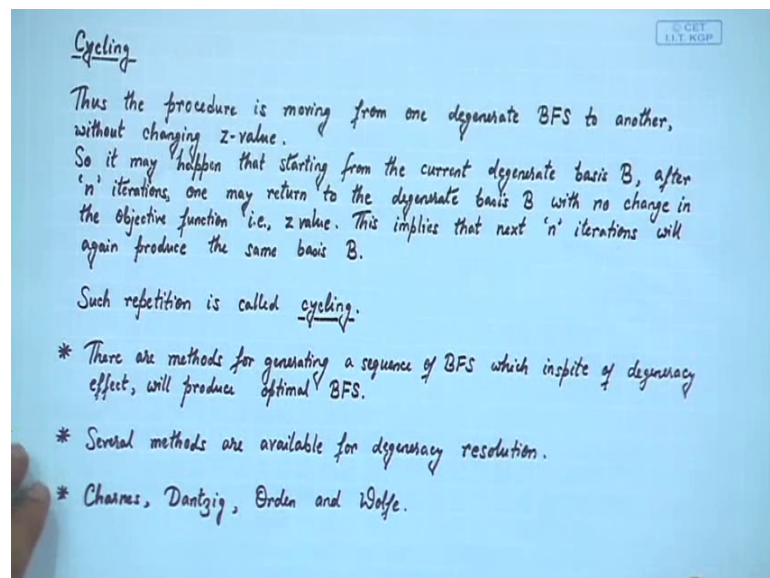 © CET
I.I.T. KGP
Cycling
Thus the procedure is moving from one degenerate BFS to another,
without changing z-value.
So it may happen that starting from the current degenerate basis B, after
'n' iterations, one may return to the degenerate basis B with no change in
the objective function i.e., z value. This implies that next 'n' iterations will
again produce the same basis B.
Such repetition is called cycling.
* There are methods for generating a sequence of BFS which inspite of degeneracy
effect, will produce optimal BFS.
* Several methods are available for degeneracy resolution.
* Charnes, Dantzig, Orden and Wolfe.